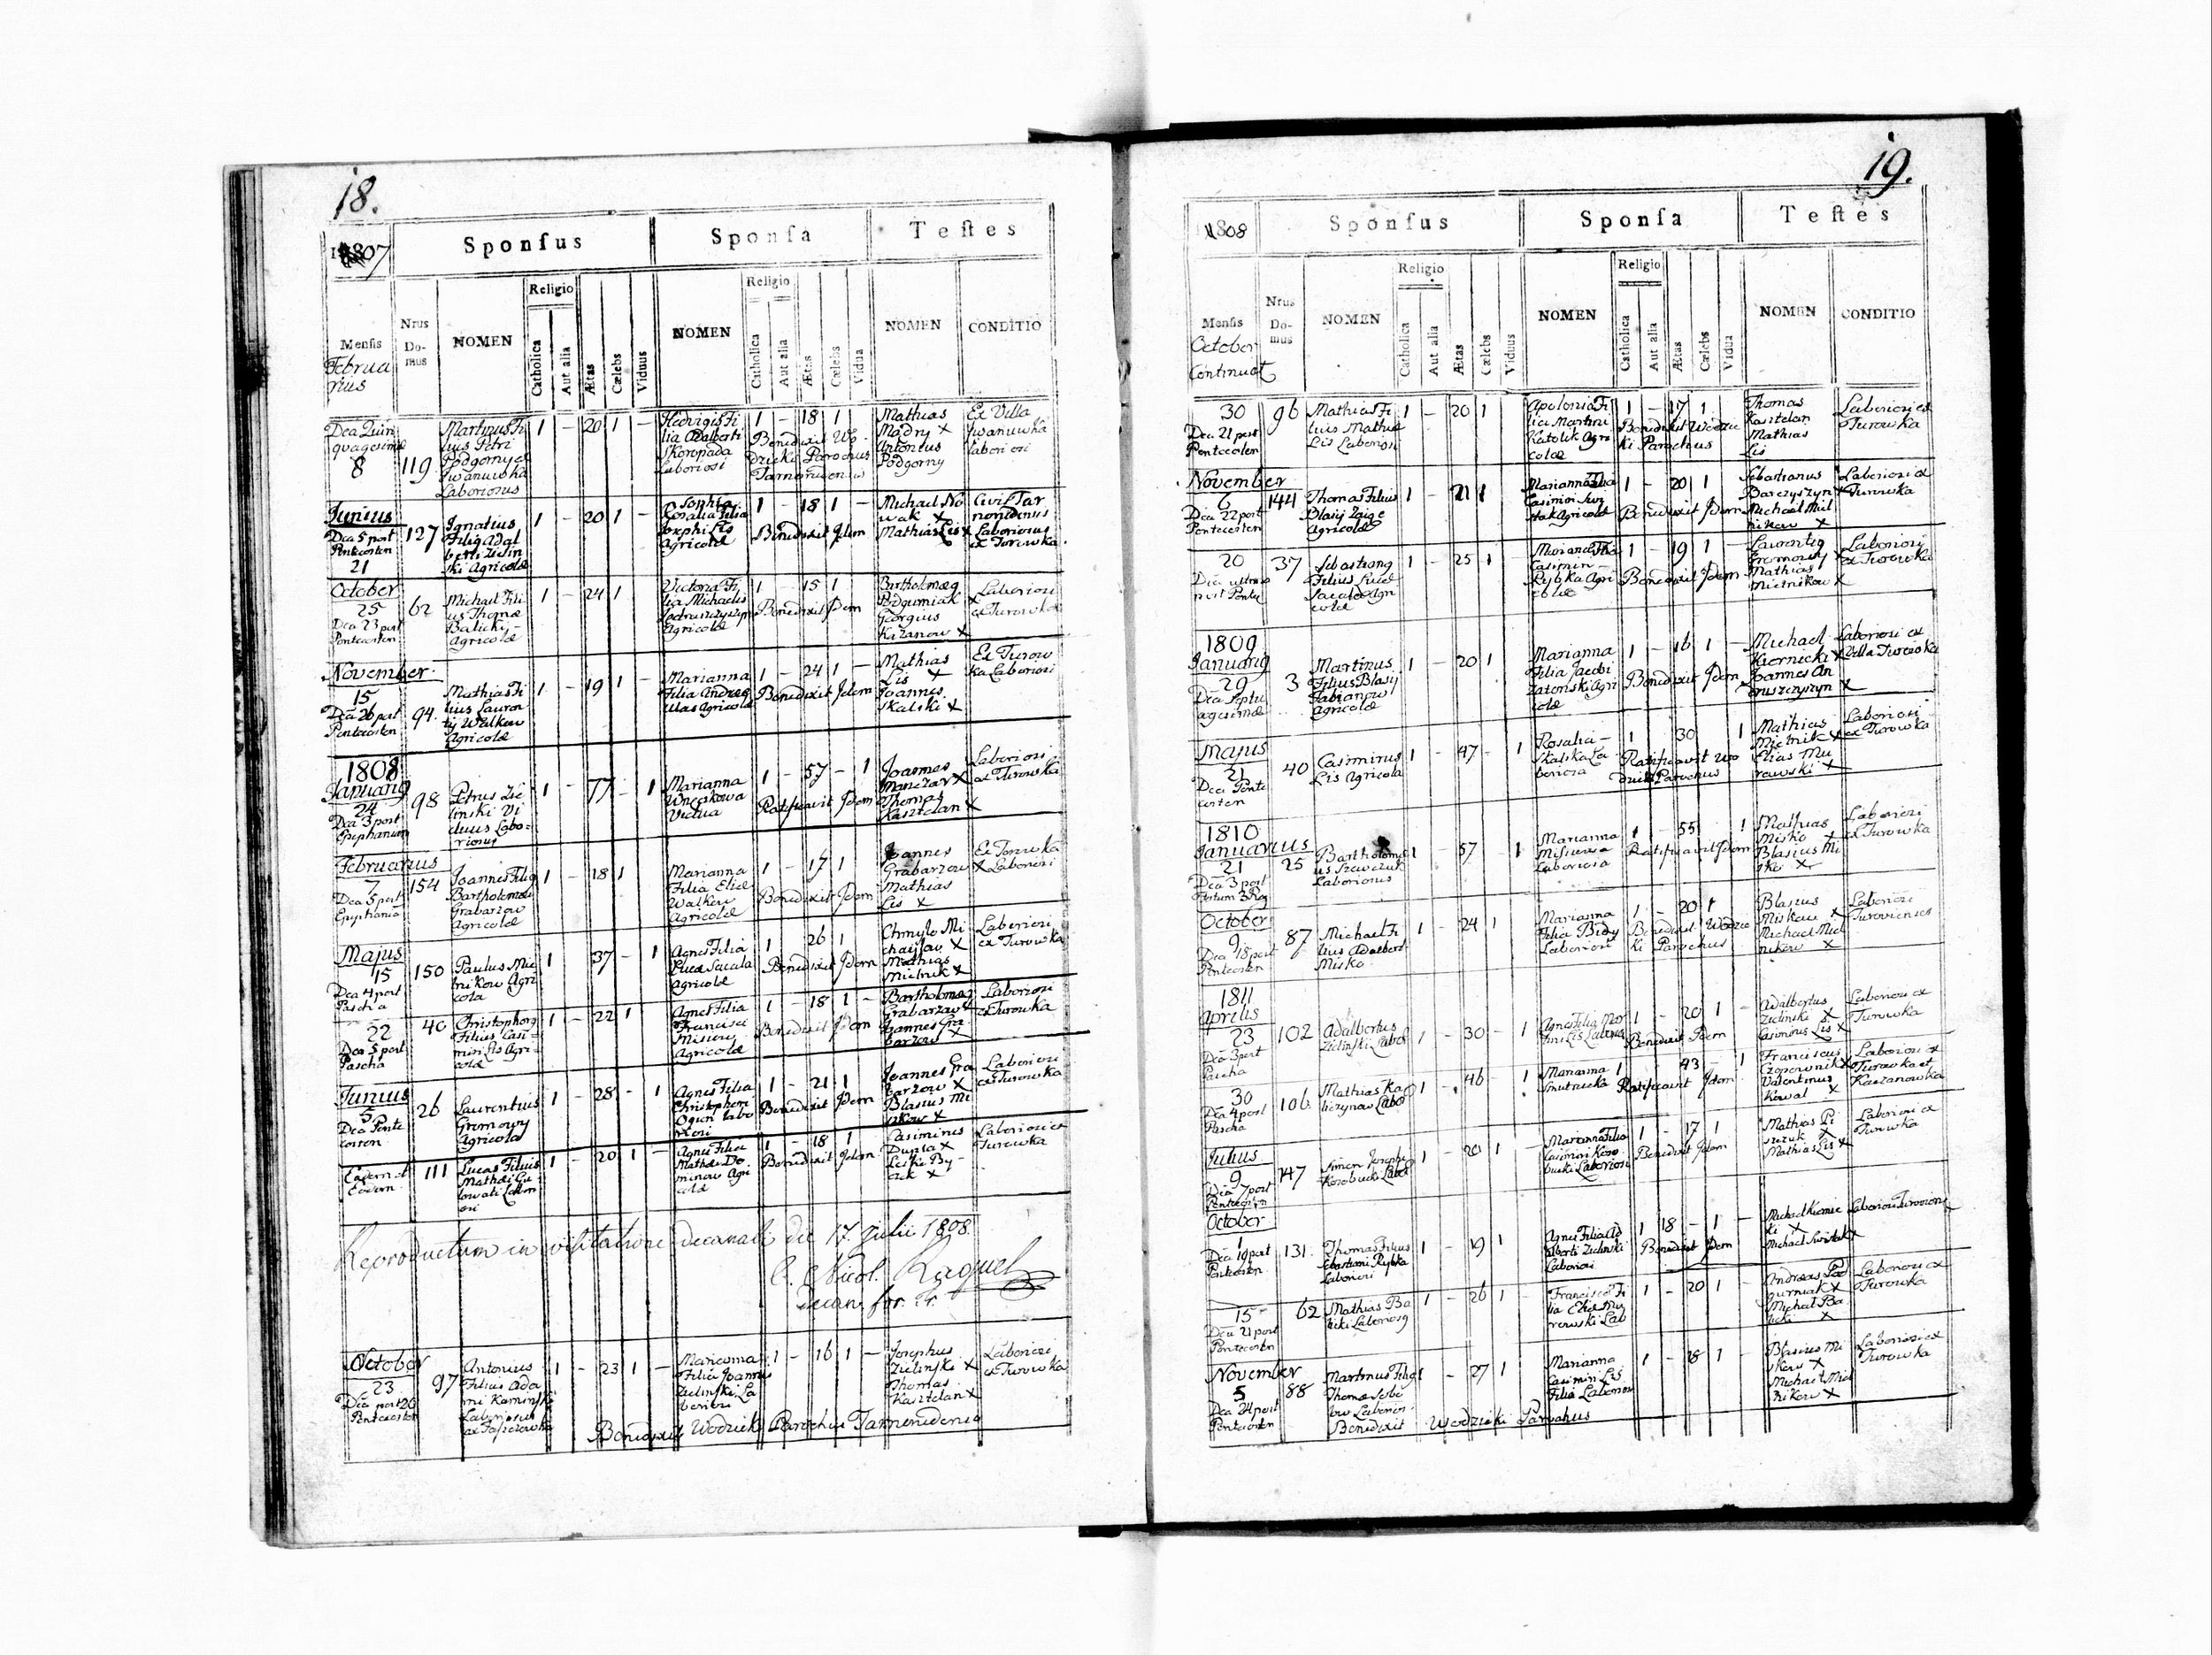 18.
1807
Sponsus
Sponsa
Testes
Mensis
Februa
rius
Nrus
Do-
mus
NOMEN
Religio
Catholica
Aut alia
Ætas
Cælebs
Viduus
NOMEN
Religio
Catholica
Aut alia
Ætas
Cælebs
Vidua
NOMEN
CONDITIO
Dca Quin
quagesimæ
8
119
Martinus Fi
lius Petri
Podgorny ex
Iwanuwka
Laboriosus
1 - 20 1 -
Hedvigis Fi
lia Adalberti
Skoropada
Laboriosi
1 - 18 1
Benedixit Wo
dzicki Parochus
Mathias
Mądry X
Antonius
Podgorny
Ex Villa
Iwanuwka
Laboriosi
Junius
Dca 5 post
Pentecosten
21
127
Ignatius
Filius Adal
berti Zielin
ski Agricolæ
1 - 20 1 -
Sophia
Rosalia Filia
Josephi Lis
Agricolæ
1 - 18 1
Benedixit Idem
Michael No
wak X
Mathias Lis X
Civis Tar
norudensis
Laboriosus
ex Turowka
October
25
Dca 23 post
Pentecosten
62
Michael Fili
us Thomæ
Balicki
Agricolæ
1 - 24 1
Victoria Fi
lia Michaelis
Agricolæ
1 - 15 1
Benedixit Idem
Bartholomeus
Podgurniak X
Georgius
Kazanow X
Laboriosi
ex Turowka
November
15
Dca 26 post
Pentecosten
94
Mathias Fi
lius Lauren
tij Walkow
Agricolæ
1 - 19 1 -
Marianna
Filia Andreæ
Ulas Agricolæ
1 - 24 1 -
Benedixit Idem
Mathias
Lis X
Joannes
Skalski X
Ex Turow
ka Laboriosi
1808
Januarius
24
Dca 3 post
Epiphaniam
98
Petrus Zie
linski Vi
duus Labo
riosus
1 - 77 - 1
Marianna
Vidua
1 - 57 - 1
Ratificavit Idem
Joannes
Manczar X
Thomas
Kasztelan X
Laboriosi
ex Turowka
Februarius
7
Dca 5 post
Epiphania
154
Joannes Filius
Bartholomæi
Grabarzow
Agricolæ
1 - 18 1
Marianna
Filia Eliæ
Walkow
Agricolæ
1 - 17 1
Benedixit Idem
Joannes
Grabarzow X
Mathias
Lis X
Ex Turowka
Laboriosi
Majus
15
Dca 4 post
Pascha
150
Paulus Miel
nikow Agri
cola
1 37 - 1
Agnes Filia
Lucæ Sacala
Agricolæ
1 26 1
Benedixit Idem
Chmylo Mi
chajlow X
Mathias
Mielnik X
Laboriosi
ex Turowka
22
Dca 5 post
Pascha
40
Christophorus
Filius Casi
miri Lis Agri
colæ
1 - 22 1
Agnes Filia
Francisci
Misiury
Agricolæ
1 - 18 1 -
Benedixit Idem
Bartholomeus
Grabarzow X
Joannes Gra
barzow X
Laboriosi
ex Turowka
Junius
5
Dca Pente
costen
26
Laurentius
Gromowy
Agricola
1 - 28 - 1
Agnes Filia
Christophori
Ogon Labo
riosi
1 - 21 1
Benedixit Idem
Joannes Gra
barzow X
Blasius Mi
skow X
Laboriosi
ex Turowka
Eadem et
Eodem
111
Lucas Filius
Mathæi Gu
lowati Labori
osi
1 - 20 1 -
Agnes Filia
Mathæi Do
minow Agri
colæ
1 - 18 1
Benedixit Idem
Casimirus
Dunia X
X
Laboriosi ex
Turowka
Reproductum in visitatione decanali die 17. Julii 1808.
Nicol. Raguel
Decan. for.
October
23
Dca post 20
Pentecosten
97
Antonius
Filius Ada
mi Kaminski
Laboriosus
1 - 23 1 -
Marianna
Filia Joannis
Zielinski La
boriosi
1 - 16 1 -
Josephus
Zielinski X
Thomas
Kasztelan X
Laboriosi
ex Turowka
Benedixit Wodzicki Parochus Tarnorudensis
19.
1808
Sponsus
Sponsa
Testes
Mensis
October
Continuat
Nrus
Do-
mus
NOMEN
Religio
Catholica
Aut alia
Ætas
Cælebs
Viduus
NOMEN
Religio
Catholica
Aut alia
Ætas
Cælebs
Vidua
NOMEN
CONDITIO
30
Dca 21 post
Pentecosten
96
Mathias Fi
lius Mathiæ
Lis Laboriosi
1 - 20 1
Apolonia Fi
lia Martini
Katolik Agri
colæ
1 - 17 1
Benedixit Wodzic
ki Parochus
Thomas
Kasztelan
Mathias
Lis
Laboriosi ex
Turowka
November
6
Dca 22 post
Pentecosten
144
Thomas Filius
Blasij
Agricolæ
1 - 21 1
Marianna Filia
Casimiri
Agricolæ
1 - 20 1
Benedixit Idem
Sebastianus
Barczyszyn
Michael Miel
nikow X
Laboriosi ex
Turowka
20
37
Sebastianus
Filius Lucæ
Sacala Agri
colæ
1 - 25 1
Marianna Filia
Casimiri
Rybka Agri
colæ
1 - 19 1 -
Benedixit Idem
Laurentius
Gromowy X
Mathias
Mielnikow X
Laboriosi
ex Turowka
1809
Januarius
29
Dca Septu
agesimæ
3
Martinus
Filius Blasij
Fabianow
Agricolæ
1 - 20 1
Marianna
Filia Jacobi
Agri
colæ
1 - 16 1 -
Benedixit Idem
Michael
Kiernicki X
Joannes An
druszczyszyn X
Laboriosi ex
Villa Turowka
Majus
21
Dca Pente
costen
40
Casimirus
Lis Agricola
1 - 47 - 1
Rosalia
Skalska La
boriosa
1 30 1
Ratificavit Wo
dzicki Parochus
Mathias
Mielnik X
Elias Mu
rowski X
Laboriosi
ex Turowka
1810
Januarius
21
Dca 3 post
Festum 3 Reg
25
Bartholomæ
us Szewczuk
Laboriosus
1 - 57 1
Marianna
Misiurowa
Laboriosa
1 - 55 1
Ratificavit Idem
Mathias
Misko X
Blasius Mi
sko X
Laboriosi
ex Turowka
October
9
Dca 18 post
Pentecosten
87
Michael Fi
lius Adalberti
Misko
1 - 24 1
Marianna
Filia
Laboriosi
1 - 20 1
Benedixit Wodzic
ki Parochus
Blasius
Miskow X
Michael Miel
nikow X
Laboriosi
Turovienses
1811
Aprilis
23
Dca 3 post
Pascha
102
Adalbertus
Zielinski Labor
1 - 30 - 1
Agnes Filia Mar
tini Lis Laborio
1 - 20 1 -
Benedixit Idem
Adalbertus
Zielinski X
Casimirus Lis X
Laboriosi ex
Turowka
30
Dca 4 post
Pascha
106
Mathias Ka
Labor
1 - 46 - 1
Marianna
Smutnicka
1 43 1
Ratificavit Idem
Franciscus
Czopownik X
Valentinus
Kowal X
Laboriosi ex
Turowka et
Kaczanowka
Julius
9
Dca 7 post
Pentecosten
147
Simon Josephi
Korobucki Labor
1 - 20 1 -
Marianna Filia
Casimiri Koro
bucki Laboriosi
1 - 17 1
Benedixit Idem
Mathias Pi
X
Mathias Lis X
Laboriosi ex
Turowka
October
1
Dca 19 post
Pentecosten
131
Thomas Filius
Sebastiani Rybka
Laboriosi
1 - 19 1
Agnes Filia Ad
alberti Zielinski
Laboriosi
1 18 - 1 -
Benedixit Idem
Michael Kiernic
ki X
Michael X
Laboriosi Turovienses
15
Dca 21 post
Pentecosten
62
Mathias Ba
licki Laboriosus
1 - 26 1 -
Francisca Fi
lia Eliæ Mu
rowski Lab
1 - 20 1 -
Andreas Pod
gurniak X
Michael Ba
licki X
Laboriosi ex
Turowka
November
5
Dca 24 post
Pentecosten
88
Martinus Filius
Thomæ
Laborios
1 - 27 1
Marianna
Casimiri Lis
Filia Laboriosi
1 - 18 1 -
Blasius Mi
skow X
Michael Miel
nikow X
Laboriosi ex
Turowka
Benedixit Wodzicki Parochus